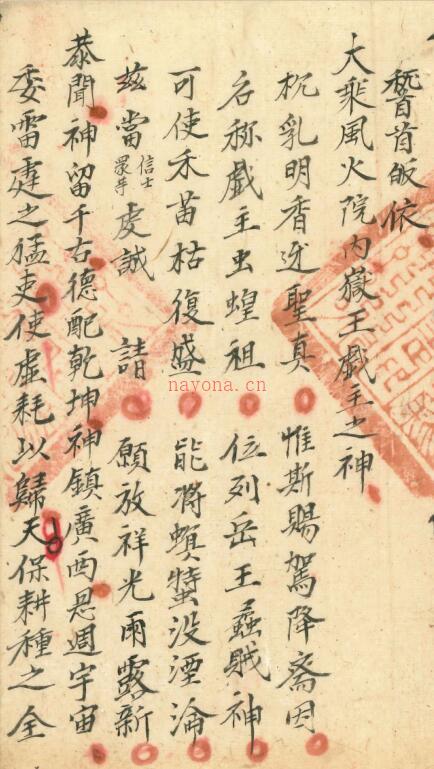 稽首皈依
大乘風火院内嶽王戯主之神
枕乳明香迓聖真 惟斯賜駕降斋因
名称戯主虫蝗祖 位列岳王蟊賊神
可使禾苗枯復盛 能将螟螣没湮淪
兹當信士衆等虔誠請 願放祥光雨露新
恭聞神留千古德配乾坤神鎮廣西恩週宇宙
委雷霆之猛吏使虚耗以歸天保耕種之全
nayona.cn